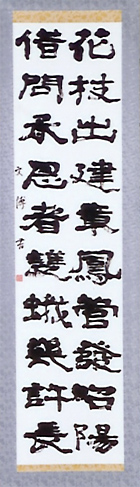 花枝出建章鳳管發昭陽
借問承恩者雙蛾幾許長
文博書